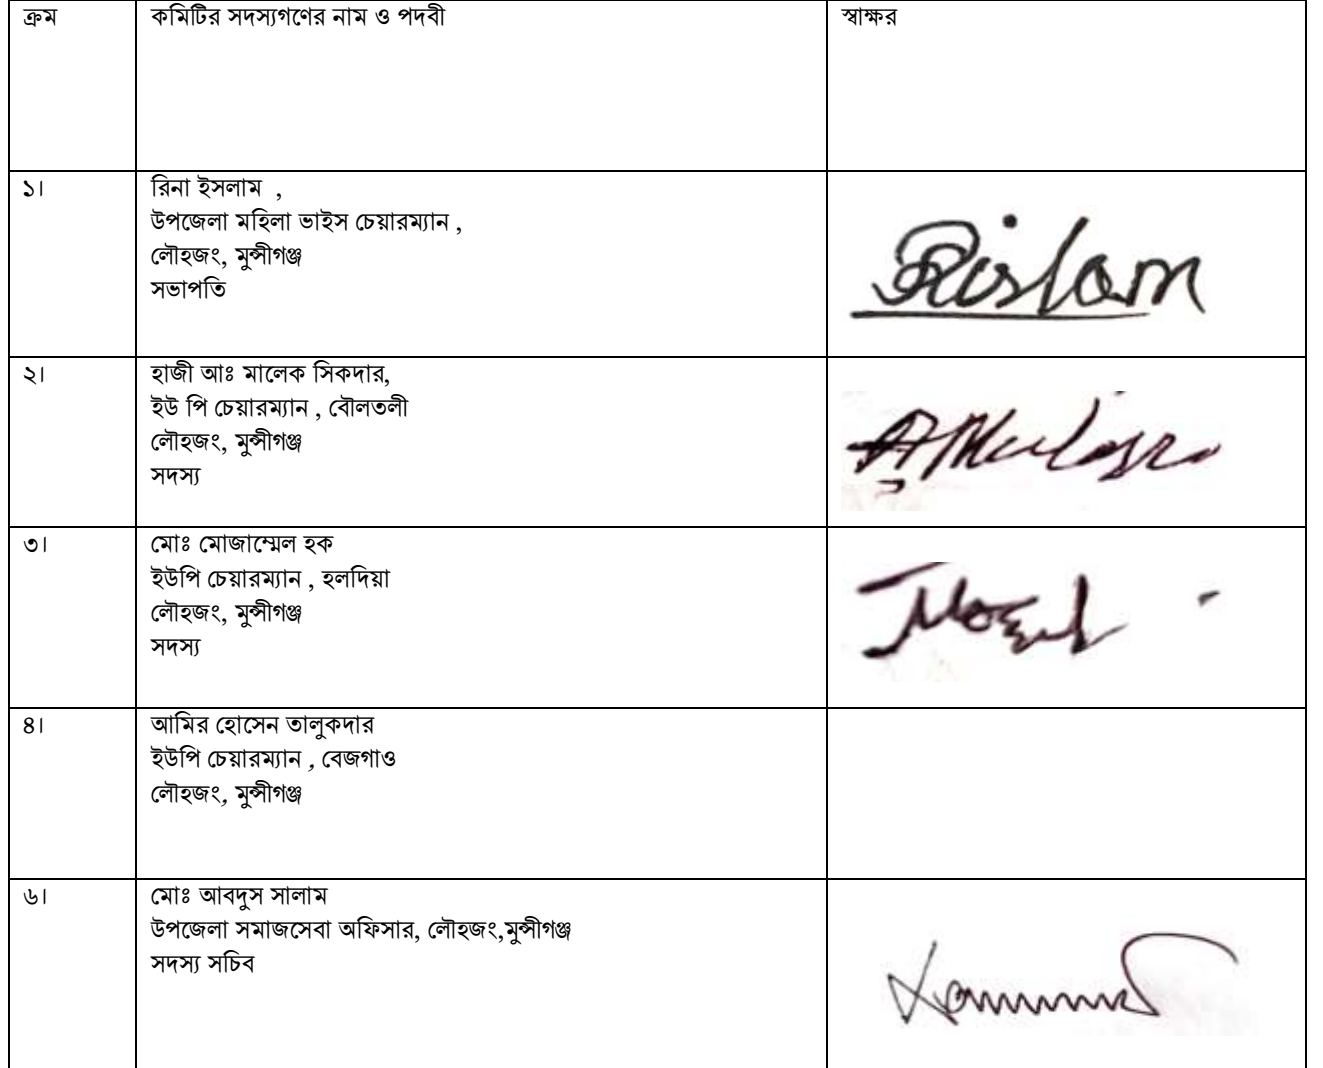 ক্রম কমিটির সদস্যগণের নাম ও পদবী স্বাক্ষর
১। রিনা ইসলাম ,
উপজেলা মহিলা ভাইস চেয়ারম্যান ,
লৌহজং, মুন্সীগঞ্জ
সভাপতি
Rislam
২। হাজী আঃ মালেক সিকদার,
ইউ পি চেয়ারম্যান , বৌলতলী
লৌহজং, মুন্সীগঞ্জ
সদস্য
৩। মোঃ মোজাম্মেল হক
ইউপি চেয়ারম্যান , হলদিয়া
লৌহজং, মুন্সীগঞ্জ
সদস্য
৪। আমির হোসেন তালুকদার
ইউপি চেয়ারম্যান , বেজগাও
লৌহজং, মুন্সীগঞ্জ
৬। মোঃ আবদুস সালাম
উপজেলা সমাজসেবা অফিসার, লৌহজং,মুন্সীগঞ্জ
সদস্য সচিব